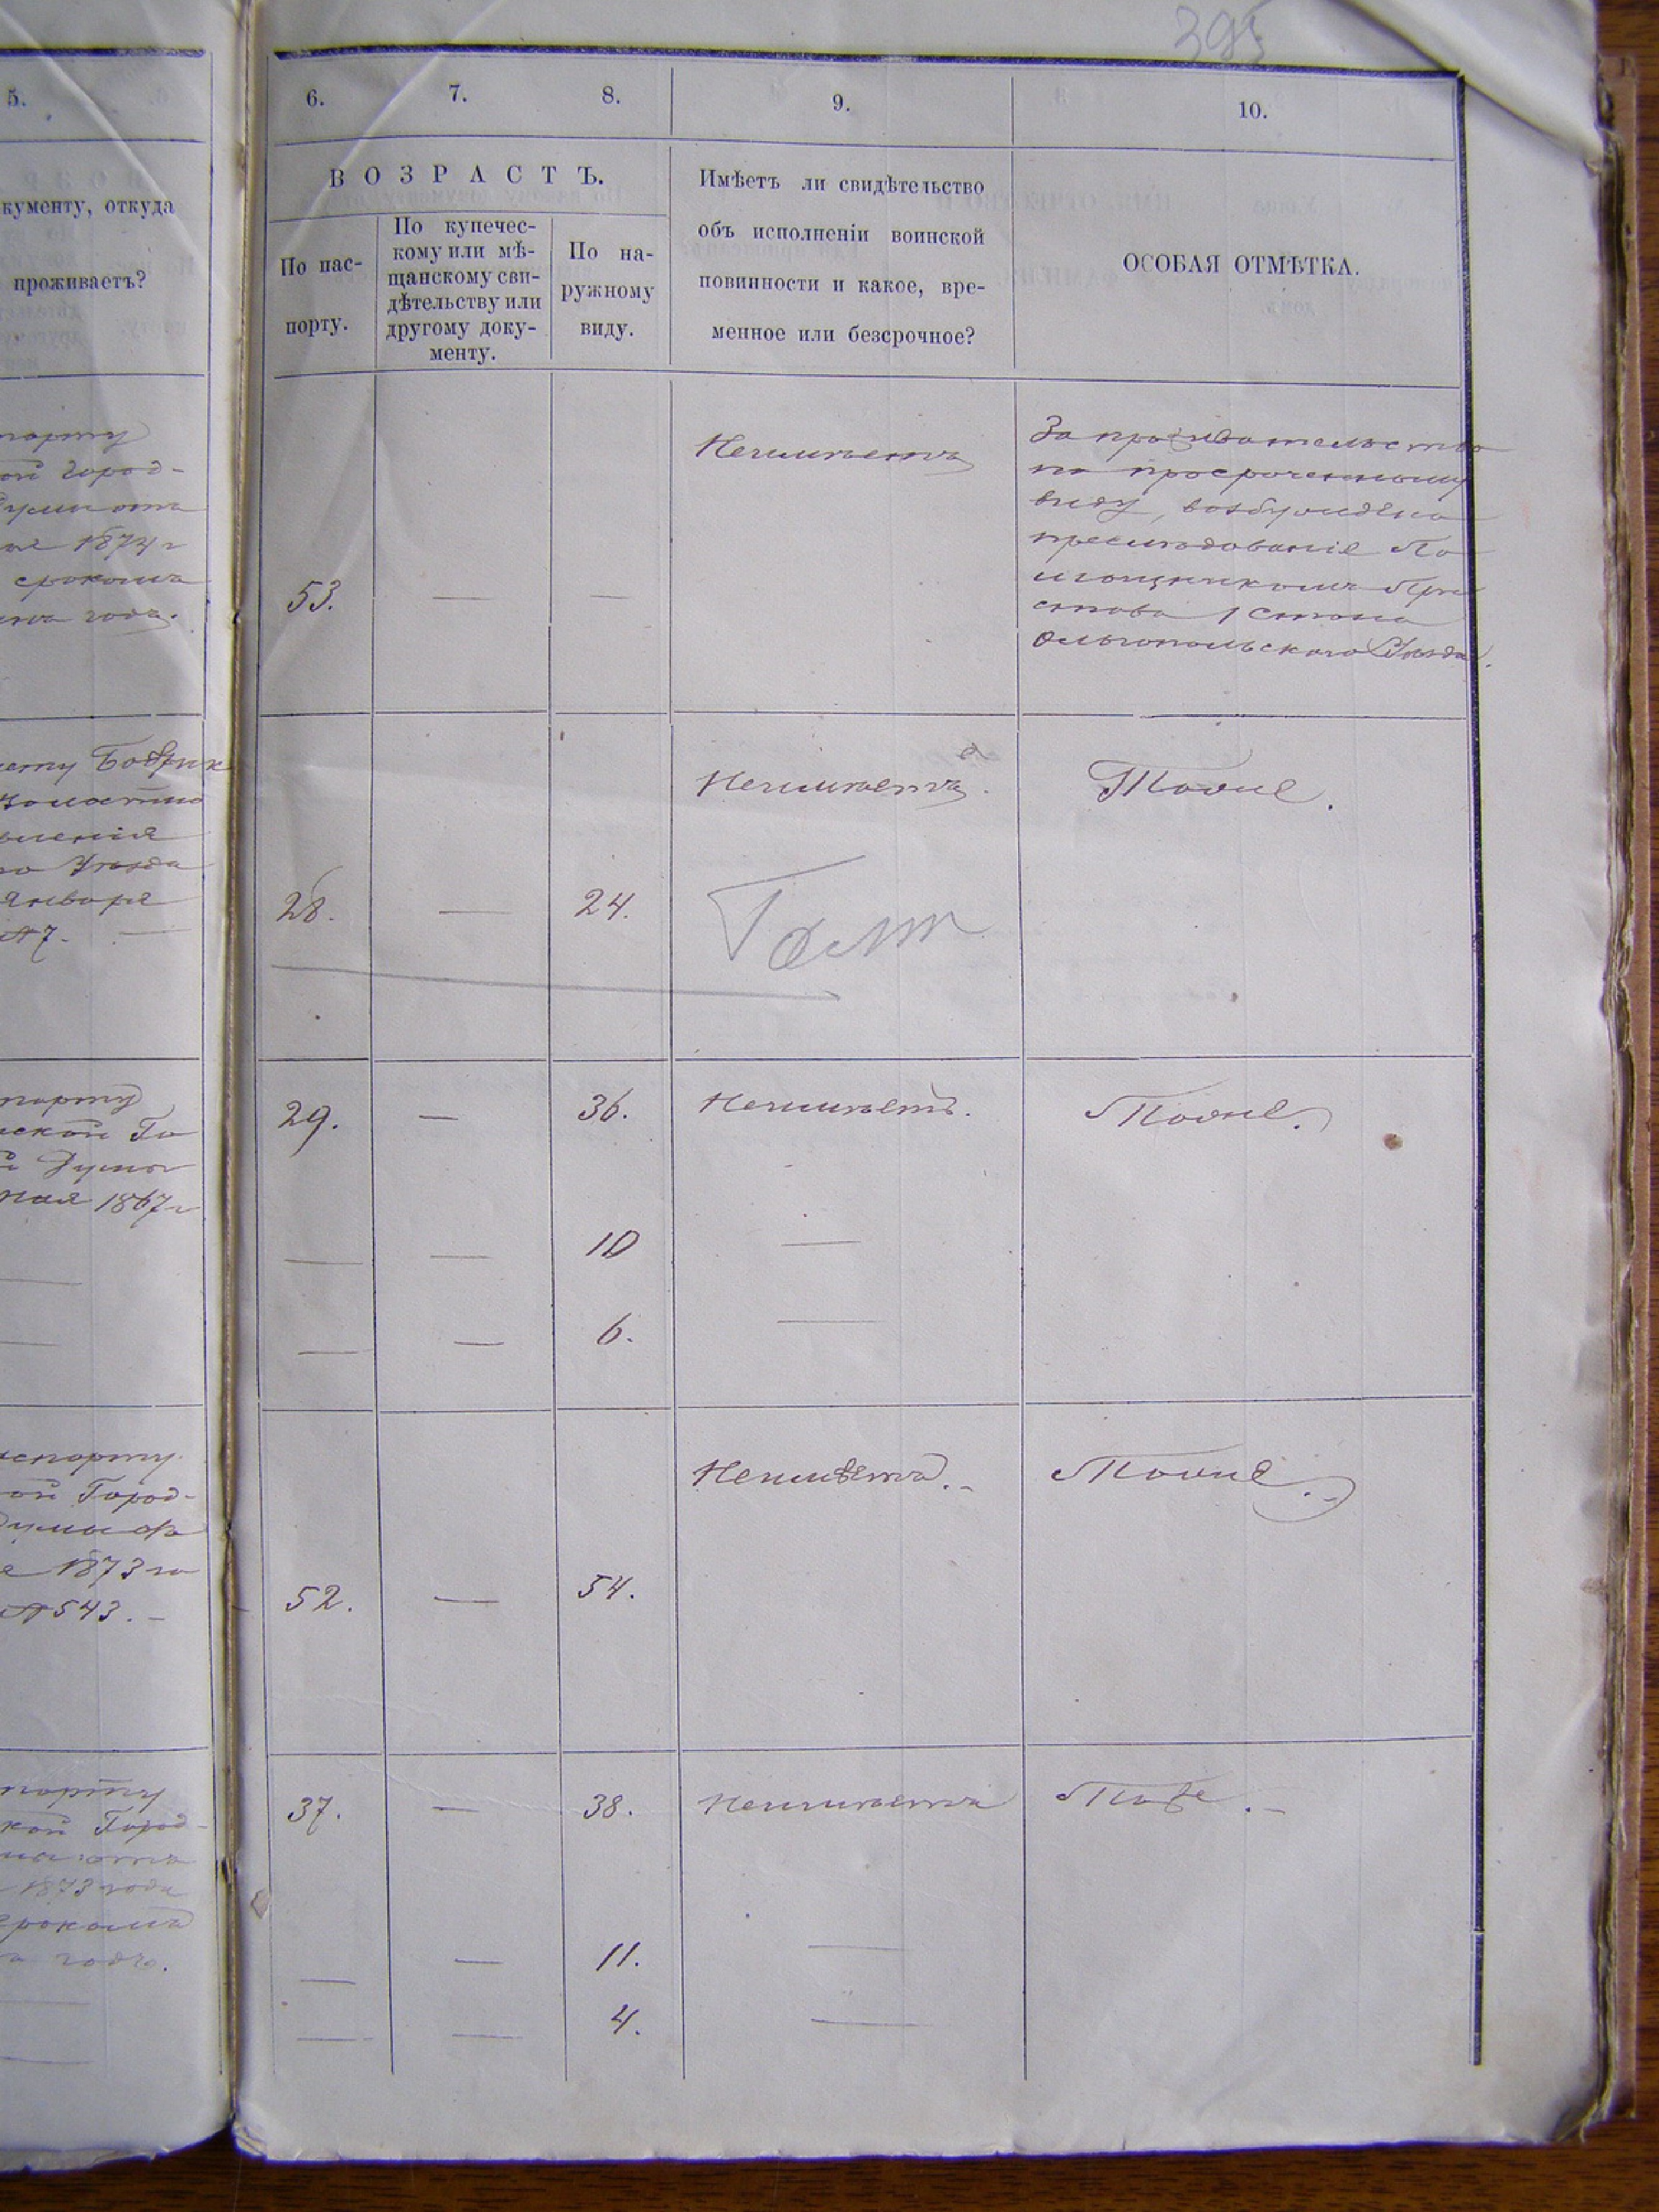 395
5.
кументу, откуда
проживаетъ?
порту
ой Город-
Думы отъ
1874 г
срокомъ
годъ.
Января
№ 7.
порту
ской Го
Думы
мая 1867 г
аспорту
ой Город-
1873 го
№ 543. –
порту
кой Город-
отъ
1873 года
срокомъ
годъ.
6.
7.
8.
9.
10.
ВОЗРАСТЪ.
По пас-
порту.
По купечес-
кому или мѣ-
щанскому сви-
дѣтельству или
другому доку-
менту.
По на-
ружному
виду.
Имѣетъ ли свидѣтельство
объ исполненіи воинской
повинности и какое, вре-
менное или безсрочное?
ОСОБАЯ ОТМѢТКА.
53. — —
Неимѣетъ
За проживательство
по просроченному
виду, возбуждено
преслѣдованіе По
мощникомъ При
става 1 Стана
Ольгопольскаго Уѣзда.
28. — 24.
Неимѣетъ.
Тоже.
29. — 36.
Неимѣетъ.
Тоже.
— — 10 —
— — 6. —
52. — 54.
Неимѣетъ. –
Тоже. –
37. — 38.
Неимѣетъ
Тоже. –
— — 11. —
— — 4. —